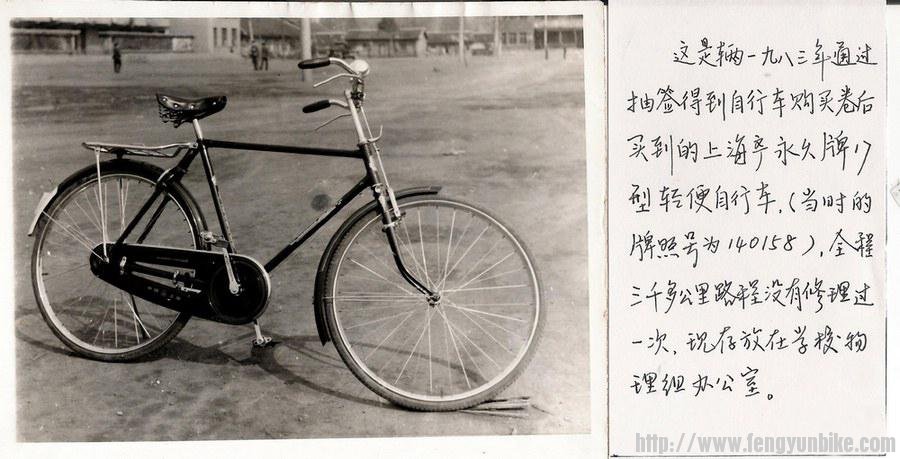 这是辆一九八三年通过
抽签得到自行车购买卷后
买到的上海产永久牌17
型轻便自行车,(当时的
牌照号为140158),全程
三千多公里路程没有修理过
一次,现存放在学校物
理组办公室。
http://www.fengyunbike.com